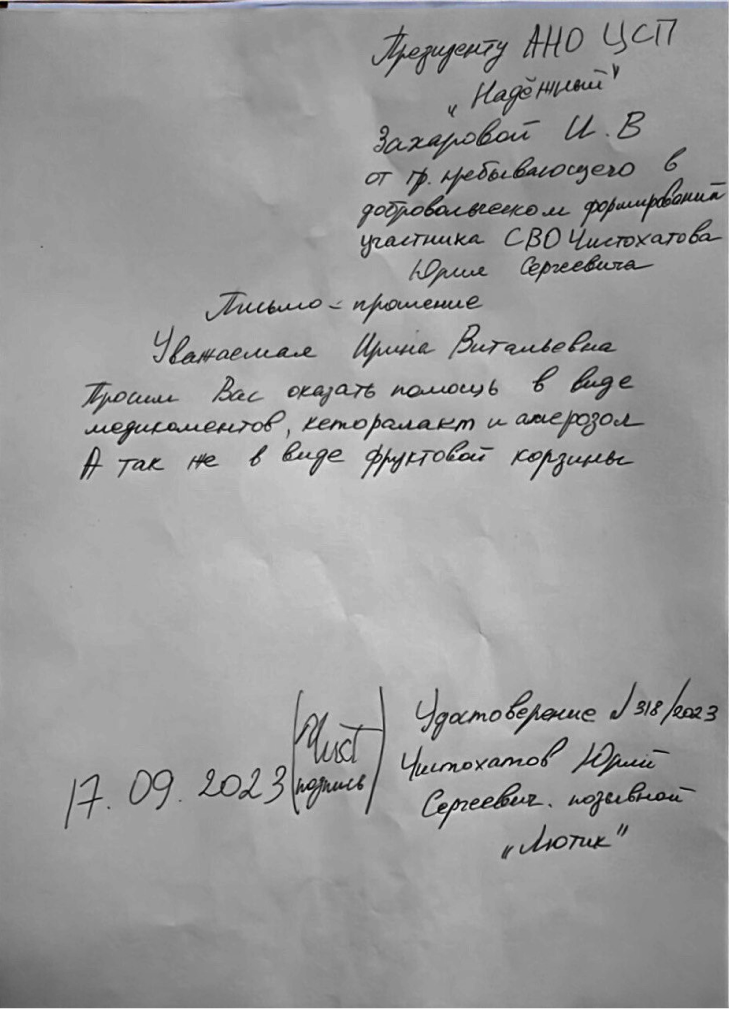 Президенту АНО ЦСП
„Надёжный"
Захаровой И. В
от гр. пребывающего в
добровольческом формировании
участника СВО Чистохатова
Юрия Сергеевича
Письмо - прошение
Уважаемая Ирина Витальевна
Просим Вас оказать помощь в виде
медикаментов, кеторалакт и
А так же в виде фруктовой корзины
Удостоверение № 318/2023
Чистохатов Юрий
Сергеевич. позывной
„Лютик"
17. 09. 2023 (Чист подпись)